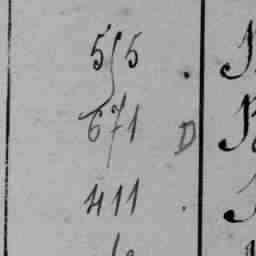 555 .
671 D
411 .